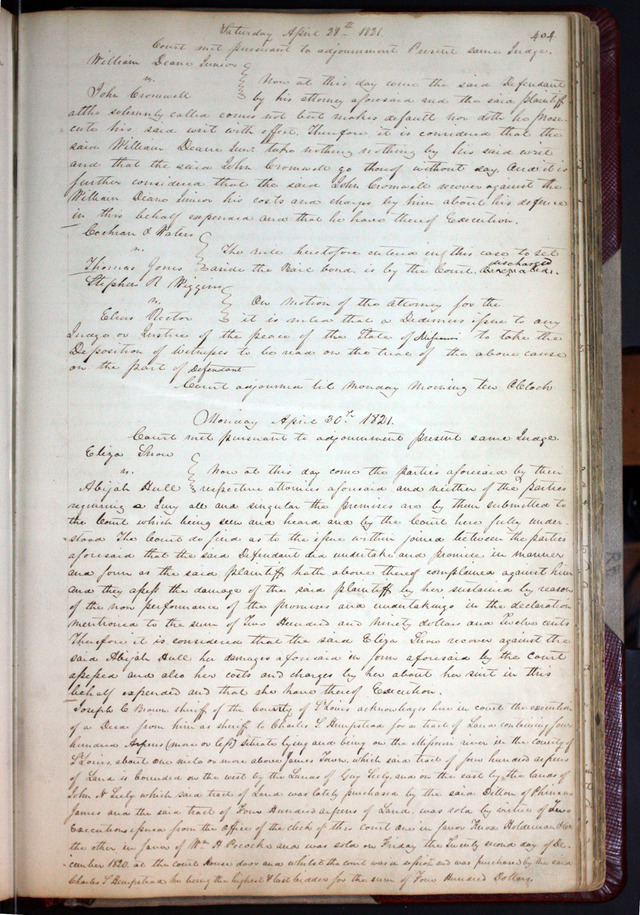 Saturday April 28th 1821.
404
Court met pursuant to adjournment Present same Judge.
William Deane Junior
vs.
John Cromwell
Now at this day came the said Defendant
by his attorney aforesaid and the said plaintiff
altho solemnly called comes not but makes default nor doth he prose-
cute his said writ with effect. Therefore it is considered that the
said William Deane Junr. take nothing nothing by his said writ
and that the said John Cromwell go thereof without day. And it is
further considered that the said John Cromwell recover against the
William Deane Junior his costs and charges by him about his defence
in this behalf expended and that he have thereof Execution.
Cochran & Waters
vs.
Thomas Jones
The rule heretofore entered in this case to set
aside the Bail bond is by the Court discharged.
Stephen R Wiggins
vs.
Elias Rector
On motion of the attorney for the
it is ruled that a Dedimus issue to any
Judge or Justice of the peace of the State of to take the
Deposition of witnesses to be read on the trial of the above cause
on the part of Defendant
Court adjourned til Monday Morning ten OClock
Monday April 30th 1821.
Court met pursuant to adjournment present same Judge
Eliza Snow
vs.
Abijah Hull
Now at this day come the parties aforesaid by their
respective attornies aforesaid and neither of the parties
requiring a Jury all and singular the premises are by them submitted to
the Court which being seen and heard and by the Court here fully under-
stood The Court do find as to the issue within joined between the parties
aforesaid that the said Defendant did undertake and promise in manner
and form as the said plaintiff hath above thereof complained against him
and they assess the damage of the said plaintiff by her sustained by reason
of the non performance of the promises and undertakings in the declaration
mentioned to the sum of Two Hundred and ninety dollars and Twelve cents
Therefore it is considered that the said Eliza Snow recover against the
said Abijah Hull her damages aforesaid in form aforesaid by the court
assessed and also her costs and charges by her about her suit in this
behalf expended and that she have thereof Execution.
Joseph C Brown sheriff of the County of St Louis acknowledges here in court the execution
of a Deed from him as sheriff to Charles S Hempstead for a tract of Land containing four
hundred Arpens (more or less) situate lying and being on the Missouri river in the county of
St Louis, about one mile or more above James Town, which said tract of four hundred arpens
of Land is bounded on the west by the Lands of Guy Seely, and on the east by the lands of
John N Seely which said tract of Land was lately purchased by the said Dillon of Phineas
James and the said tract of Four Hundred arpens of Land, was sold by virtue of Two
Executions issued from the office of the clerk of this court one in favor Knox Holderman &
the other in favor of Wm H Pocock and was sold on Friday the Twenty second day of De-
cember 1820 at the court House door and whilst the court was in session and was purchased by the said
Charles S Hempstead he being the highest & last bidder for the sum of Four Hundred Dollars.